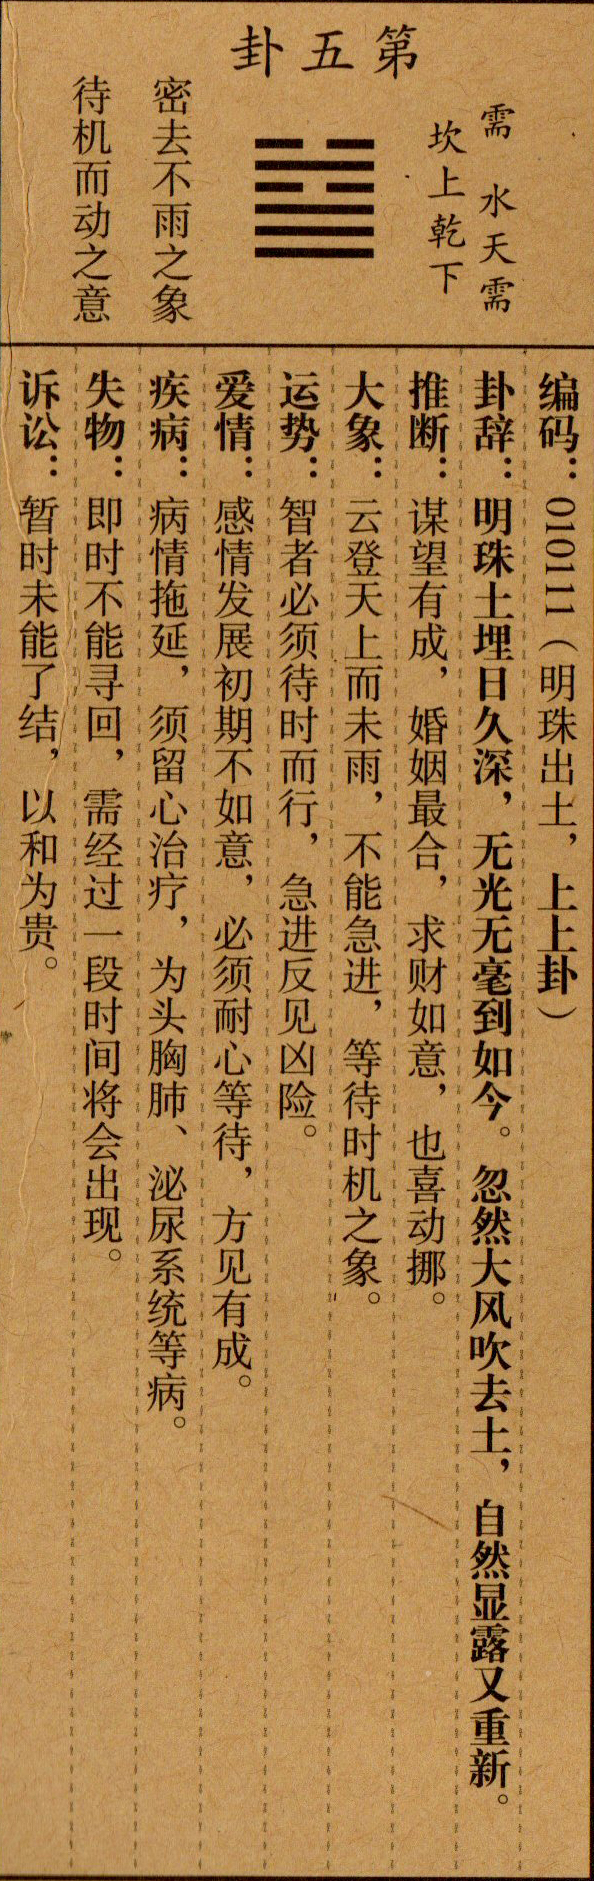 第五卦
需 水天需
坎上乾下
密去不雨之象
待机而动之意
编码：010111（明珠出土，上上卦）
卦辞：明珠土埋日久深，无光无毫到如今。忽然大风吹去土，自然显露又重新。
推断：谋望有成，婚姻最合，求财如意，也喜动挪。
大象：云登天上而未雨，不能急进，等待时机之象。
运势：智者必须待时而行，急进反见凶险。
爱情：感情发展初期不如意，必须耐心等待，方见有成。
疾病：病情拖延，须留心治疗，为头胸肺、泌尿系统等病。
失物：即时不能寻回，需经过一段时间将会出现。
诉讼：暂时未能了结，以和为贵。